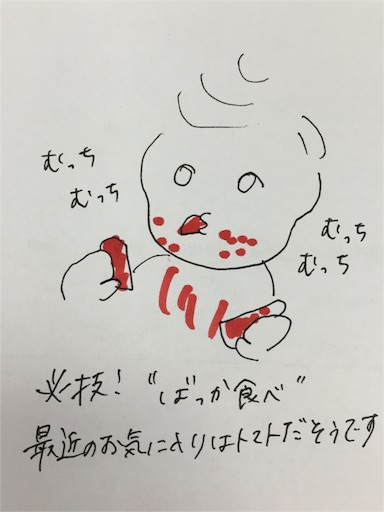 むっち
むっち
むっち
むっち
必技! "ばっか食べ"
最近のお気に入りはトマトだそうです